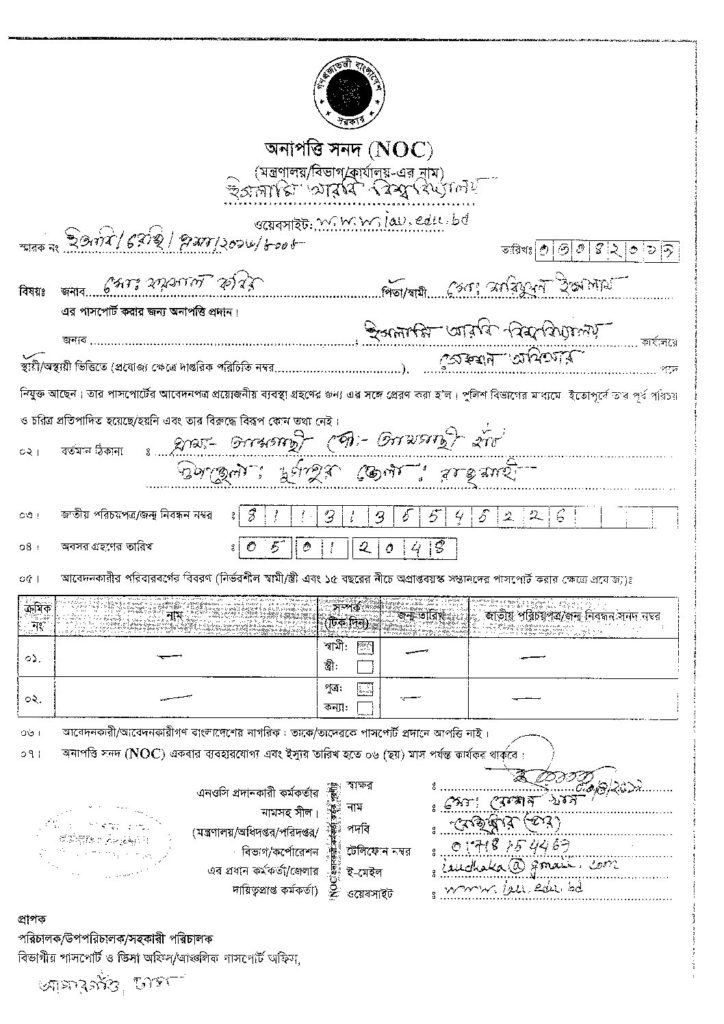 গণপ্রজাতন্ত্রী বাংলাদেশ
সরকার
অনাপত্তি সনদ (NOC)
(মন্ত্রণালয়/বিভাগ/কার্যালয়-এর নাম)
ইসলামি আরবি বিশ্ববিদ্যালয়
ওয়েবসাইট: www.iau.edu.bd
স্মারক নং ইআবি/রেজি/প্রশা/২০১৮/৮০০৮
তারিখঃ
বিষয়ঃ জনাব মোঃ ফয়সাল কবির পিতা/স্বামী মোঃ ইসলাম
এর পাসপোর্ট করার জন্য অনাপত্তি প্রদান।
জনাব ; ইসলামি আরবি বিশ্ববিদ্যালয় কার্যালয়ে
স্থায়ী/অস্থায়ী ভিত্তিতে (প্রযোজ্য ক্ষেত্রে দাপ্তরিক পরিচিতি নম্বর), সেকশন অফিসার পদে
নিযুক্ত আছেন। তার পাসপোর্টের আবেদনপত্র প্রয়োজনীয় ব্যবস্থা গ্রহণের জন্য এর সঙ্গে প্রেরণ করা হ'ল। পুলিশ বিভাগের মাধ্যমে ইতোপূর্বে তার পূর্ব পরিচয়
ও চরিত্র প্রতিপাদিত হয়েছে/হয়নি এবং তার বিরুদ্ধে বিরূপ কোন তথ্য নেই।
০২। বর্তমান ঠিকানা ঃ গ্রামঃ- আমগাছী পোঃ- আমগাছী হাট
উপজেলা: দুর্গাপুর জেলা: রাজশাহী
০৩। জাতীয় পরিচয়পত্র/জন্ম নিবন্ধন নম্বর ঃ
০৪। অবসর গ্রহণের তারিখ ঃ 05 01 2048
০৫। আবেদনকারীর পরিবারবর্গের বিবরণ (নির্ভরশীল স্বামী/স্ত্রী এবং ১৫ বছরের নীচে অপ্রাপ্তবয়স্ক সন্তানদের পাসপোর্ট করার ক্ষেত্রে প্রযোজ্য)ঃ
ক্রমিক নং নাম সম্পর্ক (টিক দিন) জন্ম তারিখ জাতীয় পরিচয়পত্র/জন্ম নিবন্ধন সনদ নম্বর
০১. স্বামী:
স্ত্রী:
০২. পুত্র:
কন্যা:
০৬। আবেদনকারী/আবেদনকারীগণ বাংলাদেশের নাগরিক। তাকে/তাদেরকে পাসপোর্ট প্রদানে আপত্তি নাই।
০৭। অনাপত্তি সনদ (NOC) একবার ব্যবহারযোগ্য এবং ইস্যুর তারিখ হতে ০৬ (ছয়) মাস পর্যন্ত কার্যকর থাকবে।
এনওসি প্রদানকারী কর্মকর্তার স্বাক্ষর ঃ
নামসহ সীল। নাম ঃ মোঃ রোশন খান
(মন্ত্রণালয়/অধিদপ্তর/পরিদপ্তর/ পদবি ঃ রেজিস্ট্রার (ভার)
বিভাগ/কর্পোরেশন টেলিফোন নম্বর ঃ 01718154467
এর প্রধান কর্মকর্তা/জেলার ই-মেইল ঃ iaudhaka@gmail.com
দায়িত্বপ্রাপ্ত কর্মকর্তা) ওয়েবসাইট ঃ www.iau.edu.bd
প্রাপক
পরিচালক/উপপরিচালক/সহকারী পরিচালক
বিভাগীয় পাসপোর্ট ও ভিসা অফিস/আঞ্চলিক পাসপোর্ট অফিস,
আগারগাঁও, ঢাকা